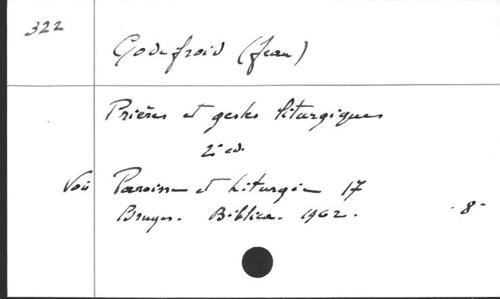 322
Godefroid (Jean)
Prières et gestes liturgiques
2e ed.
Voir Paroisse et Liturgie 17
Bruges. Biblica. 1962. 8°